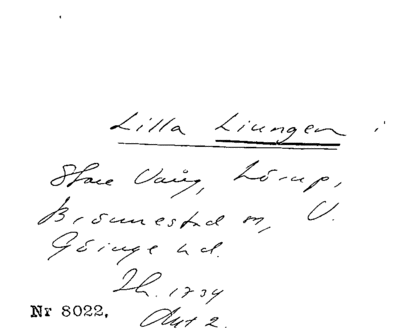 Lilla Liungen i
Store Vång, Lörup,
Brönnestad sn, V.
Göinge hd.
Lh. 1734
Akt 2.
Nr 8022.